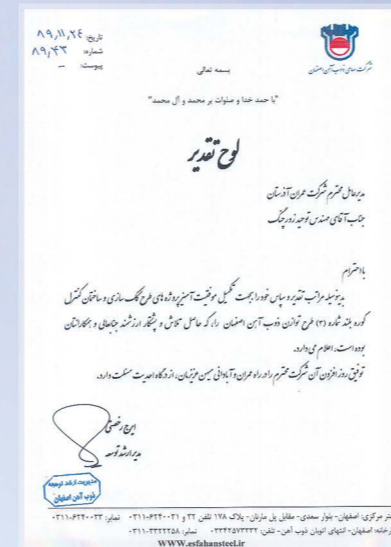 تاریخ: ۸۹,۱۱,۲۴
شماره: ۸۹,۴۳
پیوست: —
شرکت سهامی ذوب آهن اصفهان
بسمه تعالی
"با حمد خدا و صلوات بر محمد و آل محمد"
لوح تقدیر
مدیرعامل محترم شرکت عمران آذرستان
جناب آقای مهندس توحید زورچنگ
بااحترام
بدینوسیله مراتب تقدیر و سپاس خود را بجهت تکمیل موفقیت آمیز پروژه های طرح کک سازی و ساختمان کنترل
کوره بلند شماره (۳) طرح توازن ذوب آهن اصفهان را، که حاصل تلاش و پشتکار ارزشمند جنابعالی و همکارانتان
بوده است، اعلام می دارد.
توفیق روز افزون آن شرکت محترم را در راه عمران و آبادانی میهن عزیزمان، از درگاه احدیت مسئلت دارد.
ایرج رخصتی
مدیر ارشد توسعه
مدیریت ارشد توسعه
ذوب آهن اصفهان
تر مرکزی: اصفهان- بلوار سعدی- مقابل پل مارنان- پلاک ۱۷۸ تلفن ۳۲ و ۰۳۱۱-۶۲۴۰۰۳۱ نمابر: ۰۳۱۱-۶۲۴۰۰۳۳
رخانه: اصفهان- انتهای اتوبان ذوب آهن- تلفن: ۰۳۳۴۲۵۷۳۲۳۲ نمابر: ۰۳۱۱-۳۲۲۲۲۵۸
WWW.esfahansteel.ir